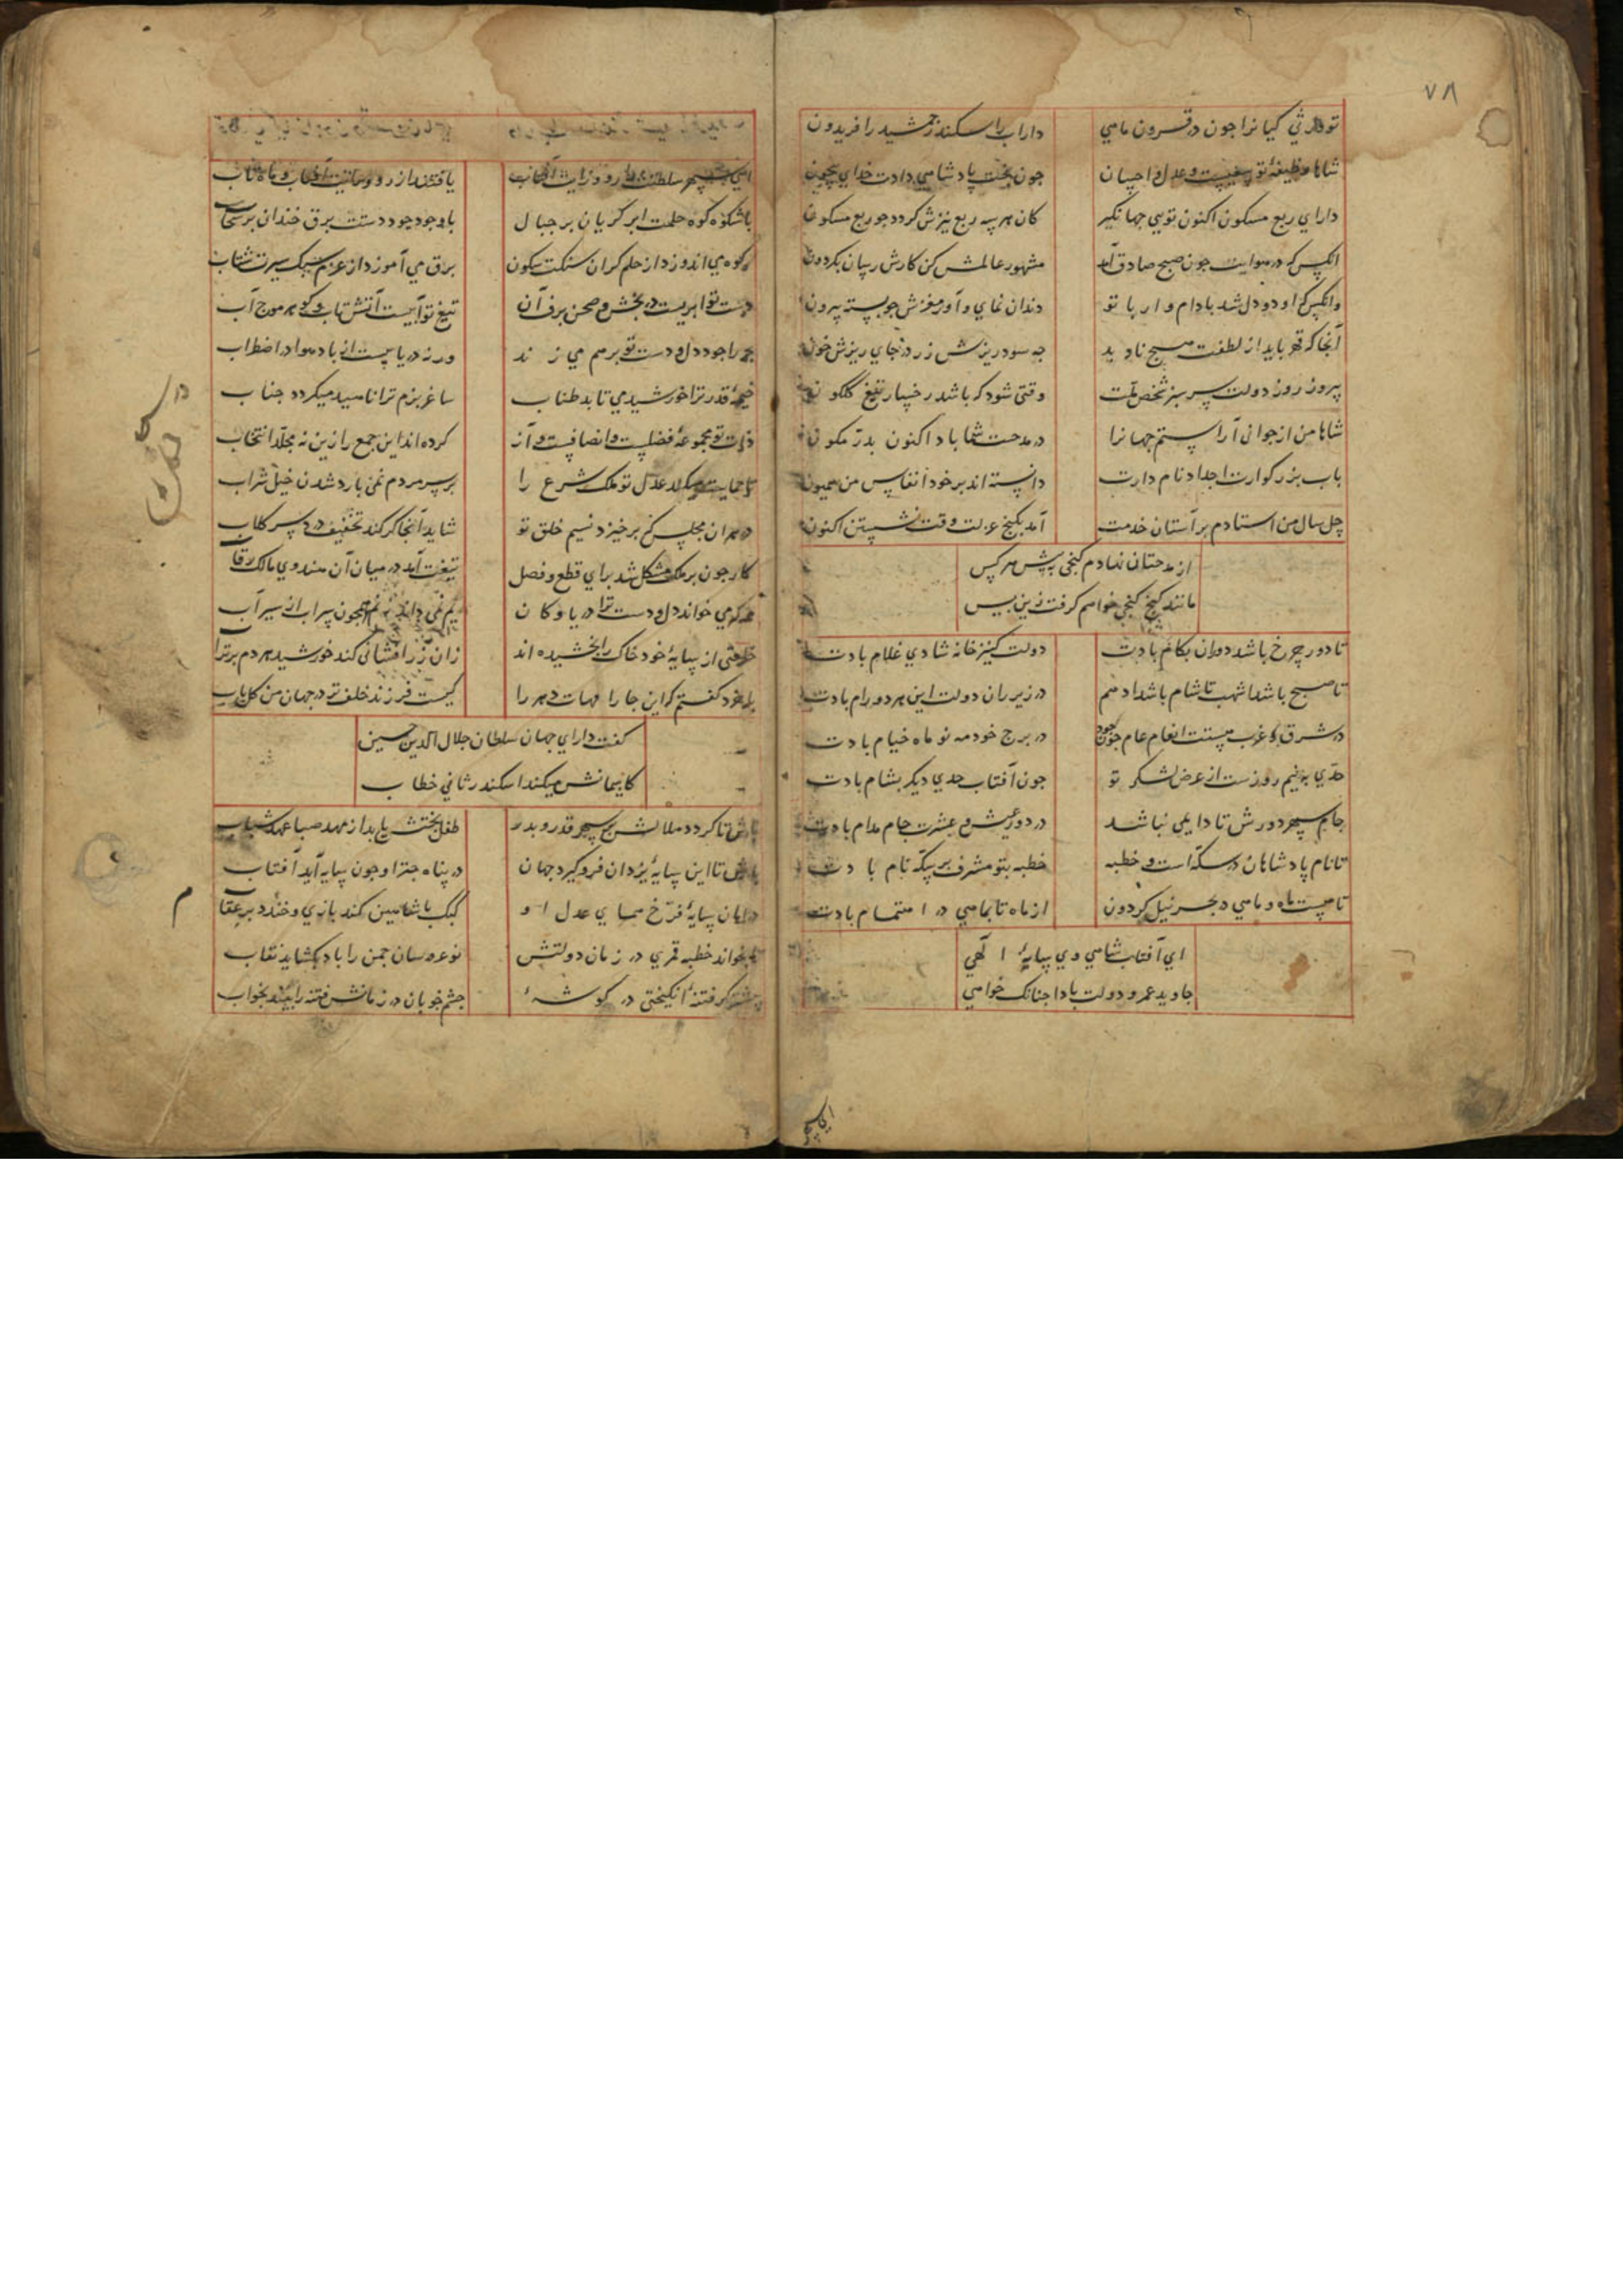 ۷۸
تو وارثی کیانرا جون در قرون ماهی داراب را سکندر جمشید را فریدون
شاها وظیفهٔ تو و عدل و احسان جون بخت پادشاهی دادت خدای بیچون
دارای ربع مسکون اکنون تویی جهانگیر کان هر سه ربع نیزش گردد جو ربع مسکون
انکس که در هوایت جون صبح صادق آمد مشهور عالمش کن کارش رسان بگردون
وانکس که او دو دل شد بادام وار با تو دندان نمای و آور مغزش جو پسته بیرون
آنجا که قهر باید از لطفت هیچ ناید جه سود ریزش زر در جای ریزش خون
پیروز روز دولت سرسبز شخص ملت وقتی شود که باشد رخسار تیغ گلگون
شاها من از جوانی آراستم جهانرا در مدحت شما باد اکنون بدتر مکون
باب بزرگوارت اجداد نام دارت دانسته اند بر خود انفاس من همیون
چل سال من استادم بر آستان خدمت آمد بکنج عزلت وقت نشستن اکنون
از مدحتان نهادم گنجی به پیش هر کس
مانند گنج کنجی خواهم گرفت زین پس
تا دور چرخ باشد دوران بکام بادت دولت کنیز خانه شادی غلام بادت
تا صبح باشد اشهب تا شام باشد ادهم در زیر ران دولت این هر دو رام بادت
در شرق و غرب هستت انعام عام جون جود در برج خود مه نو ماه خیام بادت
حدی به نیم روزست از عرض لشکر تو جون آفتاب حدی دیگر بشام بادت
جام سپهر دورش تا دایمی نباشد در دور عیش و عشرت جام مدام بادت
تا نام پادشاهان در سکه است و خطبه خطبه بتو مشرف بر سکه نام بادت
تا هست ماه و ماهی در بحر نیل گردون از ماه تا بماهی در اهتمام بادت
ای آفتاب شاهی وی سایهٔ الهی
جاوید عمر و دولت بادا جنانک خواهی
ای سپهر سلطنت را روز رایت آفتاب یافتند از رو و رایت آفتاب و ماه تاب
با شکوه کوه حلمت ابر گریان بر جبال با وجود جود دستت برق خندان بر سحاب
کوه می اندوزد از حلم گران سنگت سکون برق می آموزد از عزم سبک سیرت شتاب
دست تو ابریست در بخشش و صحن برف آن تیغ تو آبیست آتش تاب و گوهر موج آب
بحر را جود دل و دست تو بر هم می زند ورنه دریا بیست از باد هوا در اضطراب
خیمهٔ قدر ترا خورشید می تابد طناب ساغر بزم ترا ناهید میگردد جناب
ذات تو مجموعهٔ فضلست و انصافست و آز کرده اند این جمع را زین نه مجلد انتخاب
تا حمایت میکند عدل تو ملک شرع را بر سر مردم نمی یارد شدن خیل شراب
در هر آن مجلس کز برخیزد نسیم خلق تو شاید آنجا گر کند تخفیف در سر گلاب
کار جون بر ملک مشکل شد برای قطع و فصل تیغت آید در میان آن هندوی مالک رقاب
هر که می خواند دل و دست ترا دریا و کان
خلعتی از سایهٔ خود خاک را بخشیده اند زان زر افشانی کند خورشید هر دم بر تراب
با خرد گفتم که این جا را مهات دهر را کیست فرزند خلف تر در جهان من کل باب
گفت دارای جهان سلطان جلال الدین حسین
کاسمانش میکند اسکندر ثانی خطاب
باش تا گردد هلالش بر سپهر قدر و بدر طفل بختش یابد از مهد صبا عهد شباب
باش تا این سایهٔ یزدان فرو گیرد جهان در پناه جتر او جون سایه آید آفتاب
در امان سایهٔ فرخ همای عدل او کبک با شاهین کند بازی و خندد بر عقاب
تا بخواند خطبه قمری در زمان دولتش نو عروسان جمن را باد بگشاید نقاب
گرفته فتنه انگیختی در گوشهٔ جشم خوبان در زمانش فتنه را بیند بخواب